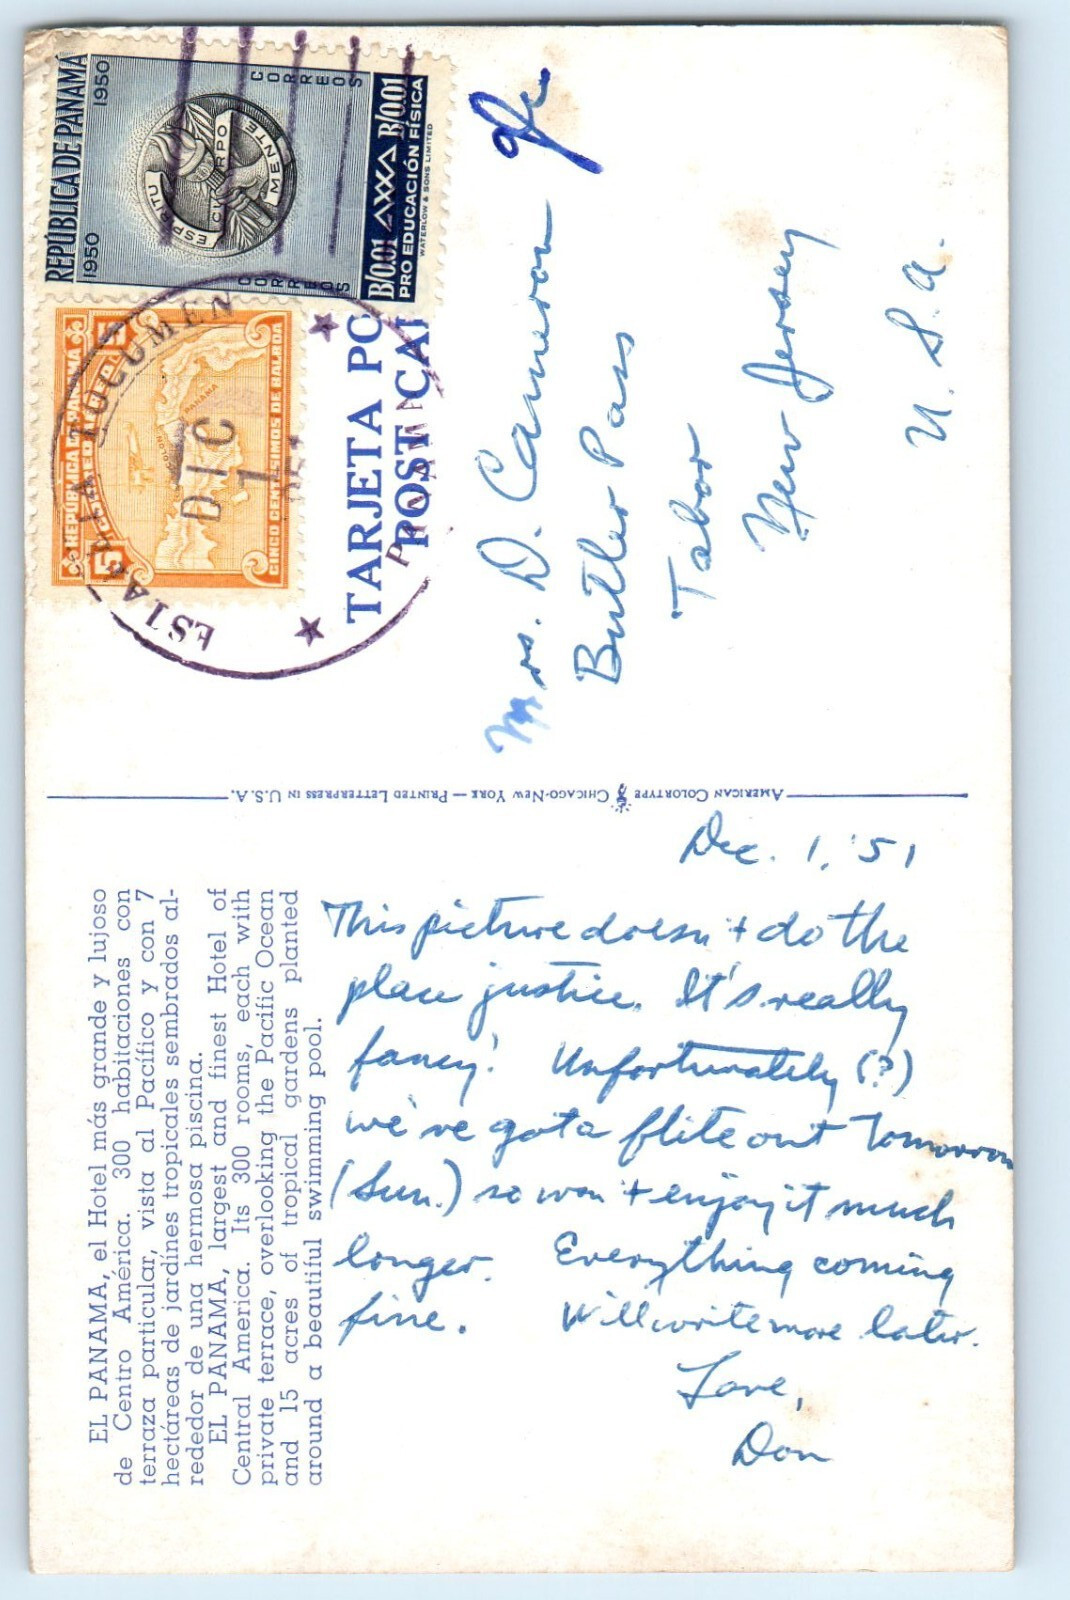 EL PANAMA, el Hotel más grande y lujoso
de Centro América. 300 habitaciones con
terraza particular, vista al Pacífico y con 7
hectáreas de jardínes tropicales sembrados al-
rededor de una hermosa piscina.
EL PANAMA, largest and finest Hotel of
Central America. Its 300 rooms, each with
private terrace, overlooking the Pacific Ocean
and 15 acres of tropical gardens planted
around a beautiful swimming pool.
Dec. 1, '51
This picture doesn't do the
place justice. It's really
fancy! Unfortunately (?)
we've gota flite out tomorrow
(Sun.) so won't enjoy it much
longer. Everything coming
fine. Will write more later.
Love,
Don
AMERICAN COLORTYPE CHICAGO-NEW YORK — PRINTED LETTERPRESS IN U.S.A.
TARJETA PO
POST CAR
REPÚBLICA DE PANAMÁ
1950 1950
CORREOS CORREOS
ESPIRITU
CUERPO
MENTE
B/0.01 B/0.01
PRO EDUCACIÓN FÍSICA
WATERLOW & SONS LIMITED
REPUBLICA DE PANAMA
CORREO AEREO
5 5
PANAMA
COLON
CINCO CENTESIMOS DE BALBOA
TOCUMEN
DIC
1
PANAMA
Mrs. D. Cameron
Butler Pass
Tabor
New Jersey
U. S. A.